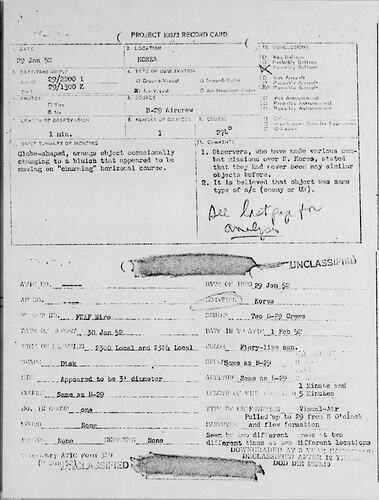 PROJECT 10073 RECORD CARD
1. DATE
29 Jan 52
2. LOCATION
KOREA
12. CONCLUSIONS
Was Balloon
Probably Balloon
Possibly Balloon
3. DATE-TIME GROUP
29/2200 I
29/1300 Z
4. TYPE OF OBSERVATION
Ground-Visual
Ground-Radar
Air-Visual
Air Intercept Radar
Was Aircraft
Probably Aircraft
Possibly Aircraft
5. PHOTOS
Yes
No
6. SOURCE
B-29 Aircrew
Was Astronomical
Probably Astronomical
Possibly Astronomical
7. LENGTH OF OBSERVATION
1 min.
8. NUMBER OF OBJECTS
1
9. COURSE
274°
Other
Insufficient Data for Evaluation
Unknown
10. BRIEF SUMMARY OF SIGHTING
Globe-shaped, orange object occasionally
changing to a bluish that appeared to be
moving on "churning" horizonal course.
11. COMMENTS
1. Observers, who have under various com-
bat missions over N. Korea, stated
that they had never seen any similar
objects before.
2. It is believed that object was some
type of a/c (enemy or UN).
See last page for
analysis
UNCLASSIFIED
ATIC NO.
DATE OF INFO 29 Jan 52
AF NO.
LOCATION Korea
REPORT NO. FEAF Wire
SOURCE Two B-29 Crews
DATE OF REPORT 30 Jan 52
DATE IN TO ATIC 1 Feb 52
TIME OF SIGHTING 2300 Local and 2324 Local
COLOR Fiery-like sun.
SHAPE Disk
SPEED Same as B-29
SIZE Appeared to be 3' diameter
ALTITUDE Same as B-29
COURSE Same as B-29
1 Minute and
LENGTH OF TIME OBSERVED 5 Minutes
NO. IN GROUP one
TYPE OF OBSERVATION Visual-Air
SOUND None
Pulled up to 29 from 8 O'clock
MANEUVERS and flew formation
PHOTOS None SKETCHES None
Seen by two different crews at two
different times at two different locations
Temporary ATIC Form 329
UNCLASSIFIED
DOWNGRADED AT 3 YEAR INTERVALS;
DECLASSIFIED AFTER 12 YEARS.
DOD DIR 5200.10